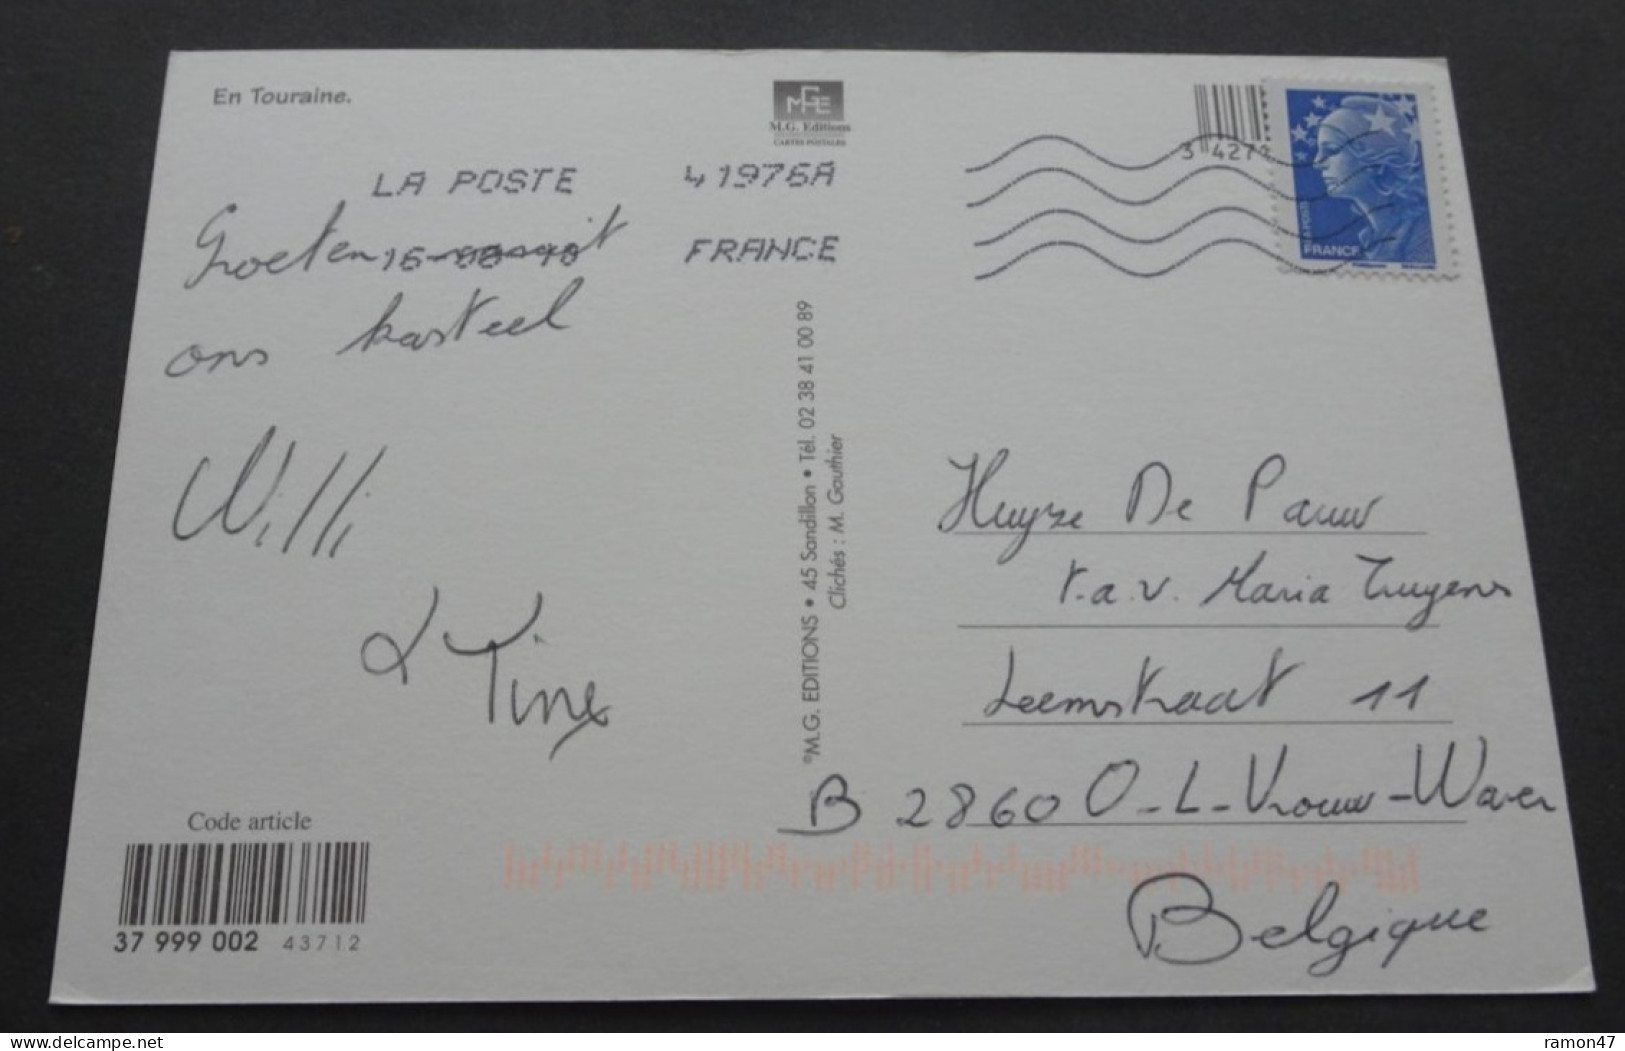 En Touraine.
MGE
M.G. Editions
CARTES POSTALES
LA POSTE 41976A
16-08-10 FRANCE
3 427
LA POSTE
FRANCE
Groeten uit
ons kasteel
Willi
& Tine
°M.G. EDITIONS • 45 Sandillon • Tél. 02 38 41 00 89
Clichés : M. Gauthier
Huyze De Pauw
t.a.v. Maria Truyens
Leemstraat 11
B 2860 O-L-Vrouw-Waver
Belgique
Code article
37 999 002 43712
delcampe.net
ramon47